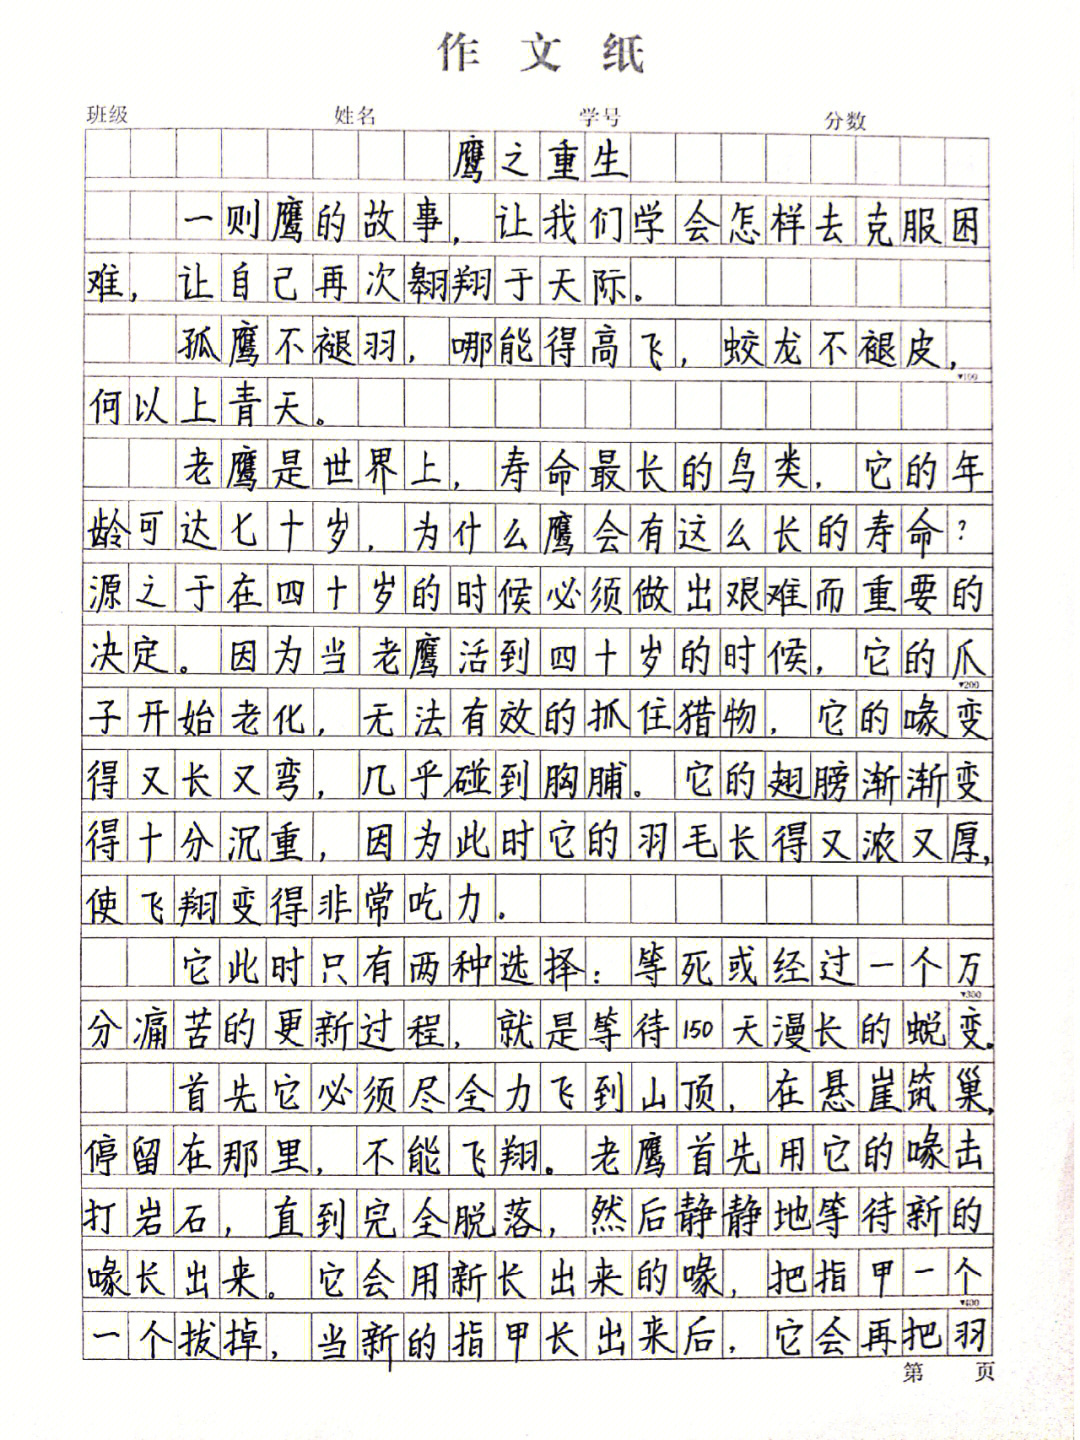 作文纸
班级 姓名 学号 分数
鹰之重生
一则鹰的故事，让我们学会怎样去克服困
难，让自己再次翱翔于天际。
孤鹰不褪羽，哪能得高飞，蛟龙不褪皮，
▾100
何以上青天。
老鹰是世界上，寿命最长的鸟类，它的年
龄可达七十岁，为什么鹰会有这么长的寿命？
源之于在四十岁的时候必须做出艰难而重要的
决定。因为当老鹰活到四十岁的时候，它的爪
▾200
子开始老化，无法有效的抓住猎物，它的喙变
得又长又弯，几乎碰到胸脯。它的翅膀渐渐变
得十分沉重，因为此时它的羽毛长得又浓又厚，
使飞翔变得非常吃力。
它此时只有两种选择：等死或经过一个万
▾300
分痛苦的更新过程，就是等待150天漫长的蜕变。
首先它必须尽全力飞到山顶，在悬崖筑巢，
停留在那里，不能飞翔。老鹰首先用它的喙击
打岩石，直到完全脱落，然后静静地等待新的
喙长出来。它会用新长出来的喙，把指甲一个
▾400
一个拔掉，当新的指甲长出来后，它会再把羽
第 页